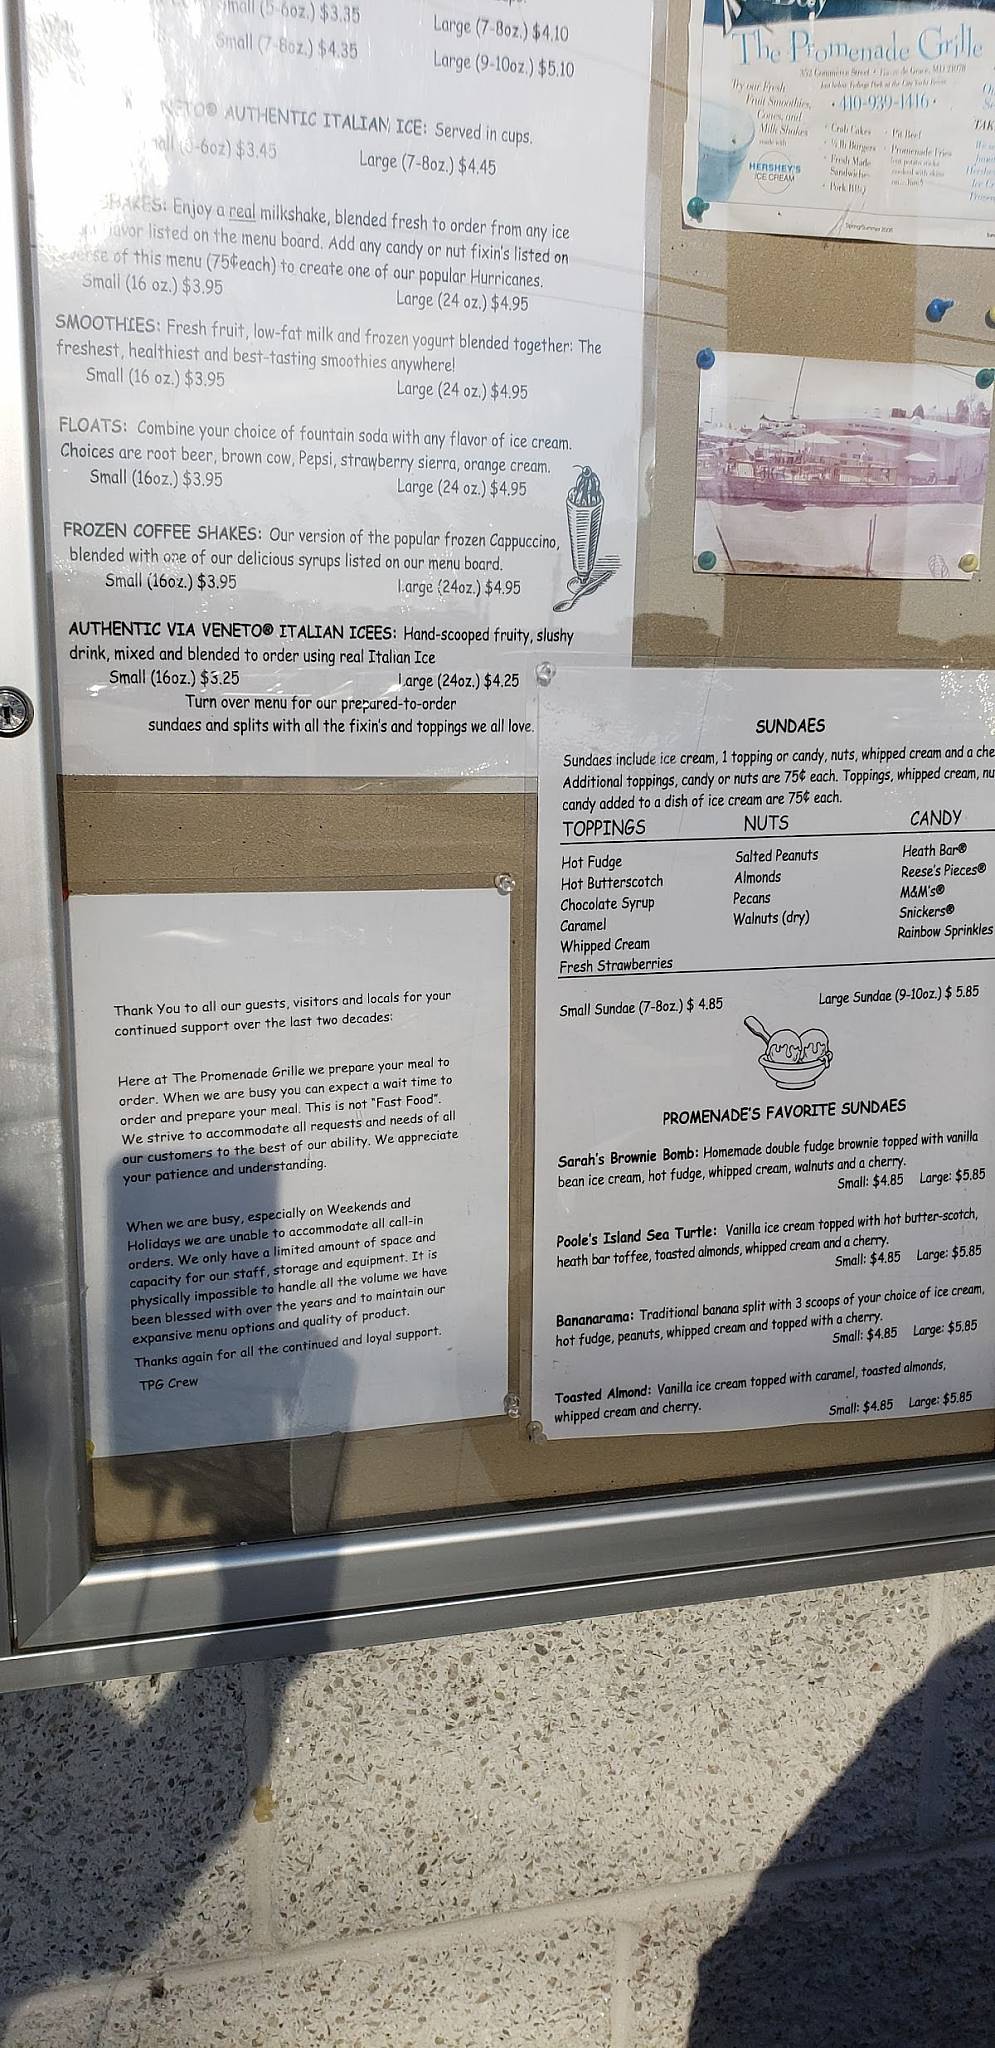 Small (5-6oz.) $3.35
Large (7-8oz.) $4.10
Small (7-8oz.) $4.35
Large (9-10oz.) $5.10
AUTHENTIC ITALIAN ICE: Served in cups.
$3.45
Large (7-8oz.) $4.45
SHAKES: Enjoy a real milkshake, blended fresh to order from any ice
flavor listed on the menu board. Add any candy or nut fixin's listed on
of this menu (75¢each) to create one of our popular Hurricanes.
Small (16 oz.) $3.95
Large (24 oz.) $4.95
SMOOTHIES: Fresh fruit, low-fat milk and frozen yogurt blended together: The
freshest, healthiest and best-tasting smoothies anywhere!
Small (16 oz.) $3.95
Large (24 oz.) $4.95
FLOATS: Combine your choice of fountain soda with any flavor of ice cream.
Choices are root beer, brown cow, Pepsi, strawberry sierra, orange cream.
Small (16oz.) $3.95
Large (24 oz.) $4.95
FROZEN COFFEE SHAKES: Our version of the popular frozen Cappuccino,
blended with one of our delicious syrups listed on our menu board.
Small (16oz.) $3.95
Large (24oz.) $4.95
AUTHENTIC VIA VENETO® ITALIAN ICEES: Hand-scooped fruity, slushy
drink, mixed and blended to order using real Italian Ice
Small (16oz.) $3.25
Large (24oz.) $4.25
Turn over menu for our prepared-to-order
sundaes and splits with all the fixin's and toppings we all love.
The Promenade Grille
Try our Fresh
Fruit Smoothies,
Cones, and
Milk Shakes
made with
HERSHEY'S
ICE CREAM
• 410-939-1416 •
• Crab Cakes
• Fresh Made
Sandwiches
• Pit Beef
• Promenade Fries
TAK
SUNDAES
Sundaes include ice cream, 1 topping or candy, nuts, whipped cream and a che
Additional toppings, candy or nuts are 75¢ each. Toppings, whipped cream, nu
candy added to a dish of ice cream are 75¢ each.
TOPPINGS
Hot Fudge
Hot Butterscotch
Chocolate Syrup
Caramel
Whipped Cream
Fresh Strawberries
NUTS
Salted Peanuts
Almonds
Pecans
Walnuts (dry)
CANDY
Heath Bar®
Reese's Pieces®
M&M's®
Snickers®
Rainbow Sprinkles
Small Sundae (7-8oz.) $ 4.85
Large Sundae (9-10oz.) $ 5.85
PROMENADE'S FAVORITE SUNDAES
Sarah's Brownie Bomb: Homemade double fudge brownie topped with vanilla
bean ice cream, hot fudge, whipped cream, walnuts and a cherry.
Small: $4.85 Large: $5.85
Poole's Island Sea Turtle: Vanilla ice cream topped with hot butter-scotch,
heath bar toffee, toasted almonds, whipped cream and a cherry.
Small: $4.85 Large: $5.85
Bananarama: Traditional banana split with 3 scoops of your choice of ice cream,
hot fudge, peanuts, whipped cream and topped with a cherry.
Small: $4.85 Large: $5.85
Toasted Almond: Vanilla ice cream topped with caramel, toasted almonds,
whipped cream and cherry.
Small: $4.85 Large: $5.85
Thank You to all our guests, visitors and locals for your
continued support over the last two decades:
Here at The Promenade Grille we prepare your meal to
order. When we are busy you can expect a wait time to
order and prepare your meal. This is not "Fast Food".
We strive to accommodate all requests and needs of all
our customers to the best of our ability. We appreciate
your patience and understanding.
When we are busy, especially on Weekends and
Holidays we are unable to accommodate all call-in
orders. We only have a limited amount of space and
capacity for our staff, storage and equipment. It is
physically impossible to handle all the volume we have
been blessed with over the years and to maintain our
expansive menu options and quality of product.
Thanks again for all the continued and loyal support.
TPG Crew